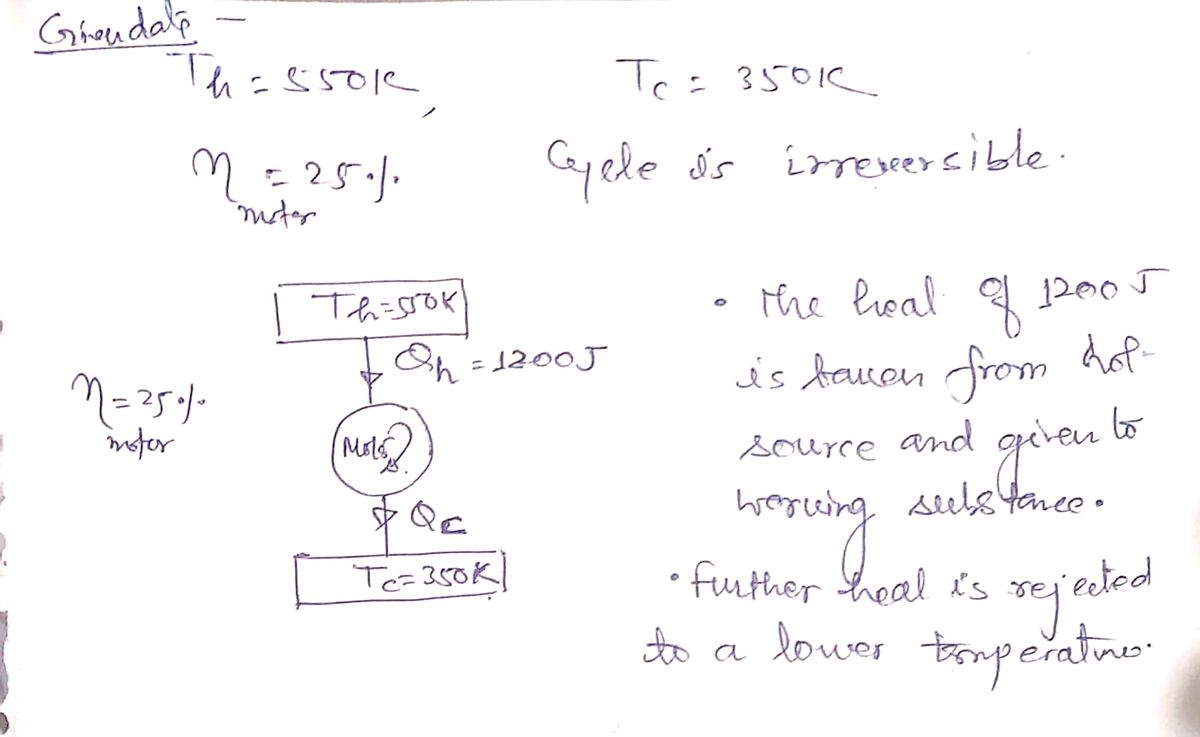 Given data -
Th = 550K, Tc = 350K
η motor = 25% Cycle is irreversible.
Th = 550K
Qh = 1200J
η motor = 25%
Motor
Qc
Tc = 350K
• The heat of 1200 J
is taken from hot
source and given to
working substance.
• Further heat is rejected
to a lower temperature.